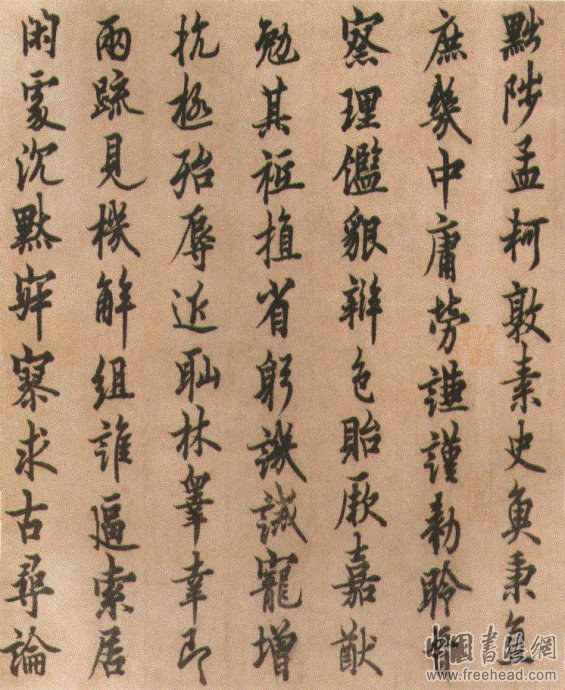 黜陟孟柯敦素史魚秉直
庶幾中庸勞謙謹勅聆音
察理鑑貌辨色貽厥嘉猷
勉其祗植省躬譏誡寵增
抗極殆辱近耻林睾幸即
兩疏見機解組誰逼索居
閑處沉默寂寥求古尋論
中国書法網
www.freehead.com